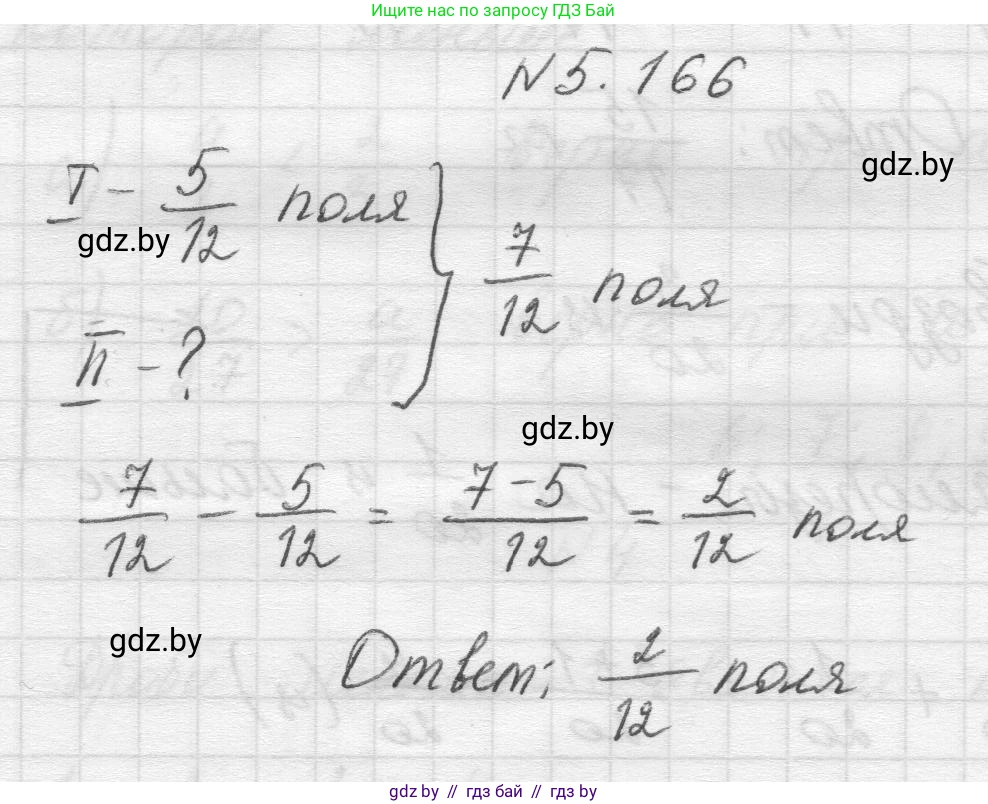 Ищите нас по запросу ГДЗ Бай
N 5. 166
gdz.by
I - 5/12 поля
gdz.by
7/12 поля
II - ?
gdz.by
7/12 - 5/12 = 7-5/12 = 2/12 поля
gdz.by
Ответ: 2/12 поля
gdz by // гдз бай // гдз by